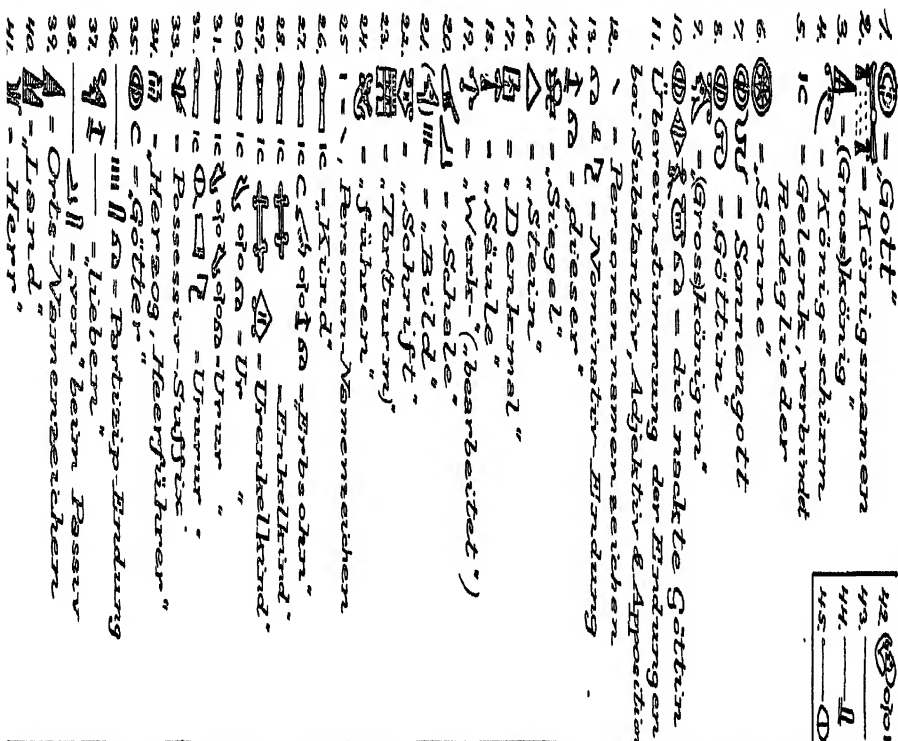 1. = „Gott"
2. = Königsnamen
3. = „(Gross)könig"
4. = Königsschirm
5. IC = Gelenk, verbindet
Redeglieder
6. = „Sonne"
7. = Sonnengott
8. = „Göttin"
9. = „(Gross)königin"
10. = die nackte Göttin
11. Übereinstimmung der Endungen
bei Substantiv, Adjektiv & Apposition
12. = Personennamenzeichen
13. & = Nominativ-Endung
14. = „dieser"
15. = „Siegel"
16. = „Stein"
17. = „Denkmal"
18. = „Säule"
19. = „Werk-" („bearbeitet")
20. = „Schale"
21. = „Bild"
22. = „Schrift"
23. = „Tor(turm)"
24. = „führen"
25. = Personen-Namenzeichen
26. IC = „Kind"
27. IC = „Erbsohn"
28. IC = „Enkelkind"
29. IC = „Urenkelkind"
30. IC = Ur "
31. IC = Urur "
32. IC = Ururur "
33. = Possessiv-Suffix
34. = „Herzog, Heerführer"
35. C = „Götter"
36. = Partizip-Endung
37. = „lieben"
38. = „von" beim Passiv
39. = Orts-Namenzeichen
40. = „Land"
41. = „Herr"
42.
43.
44.
45.